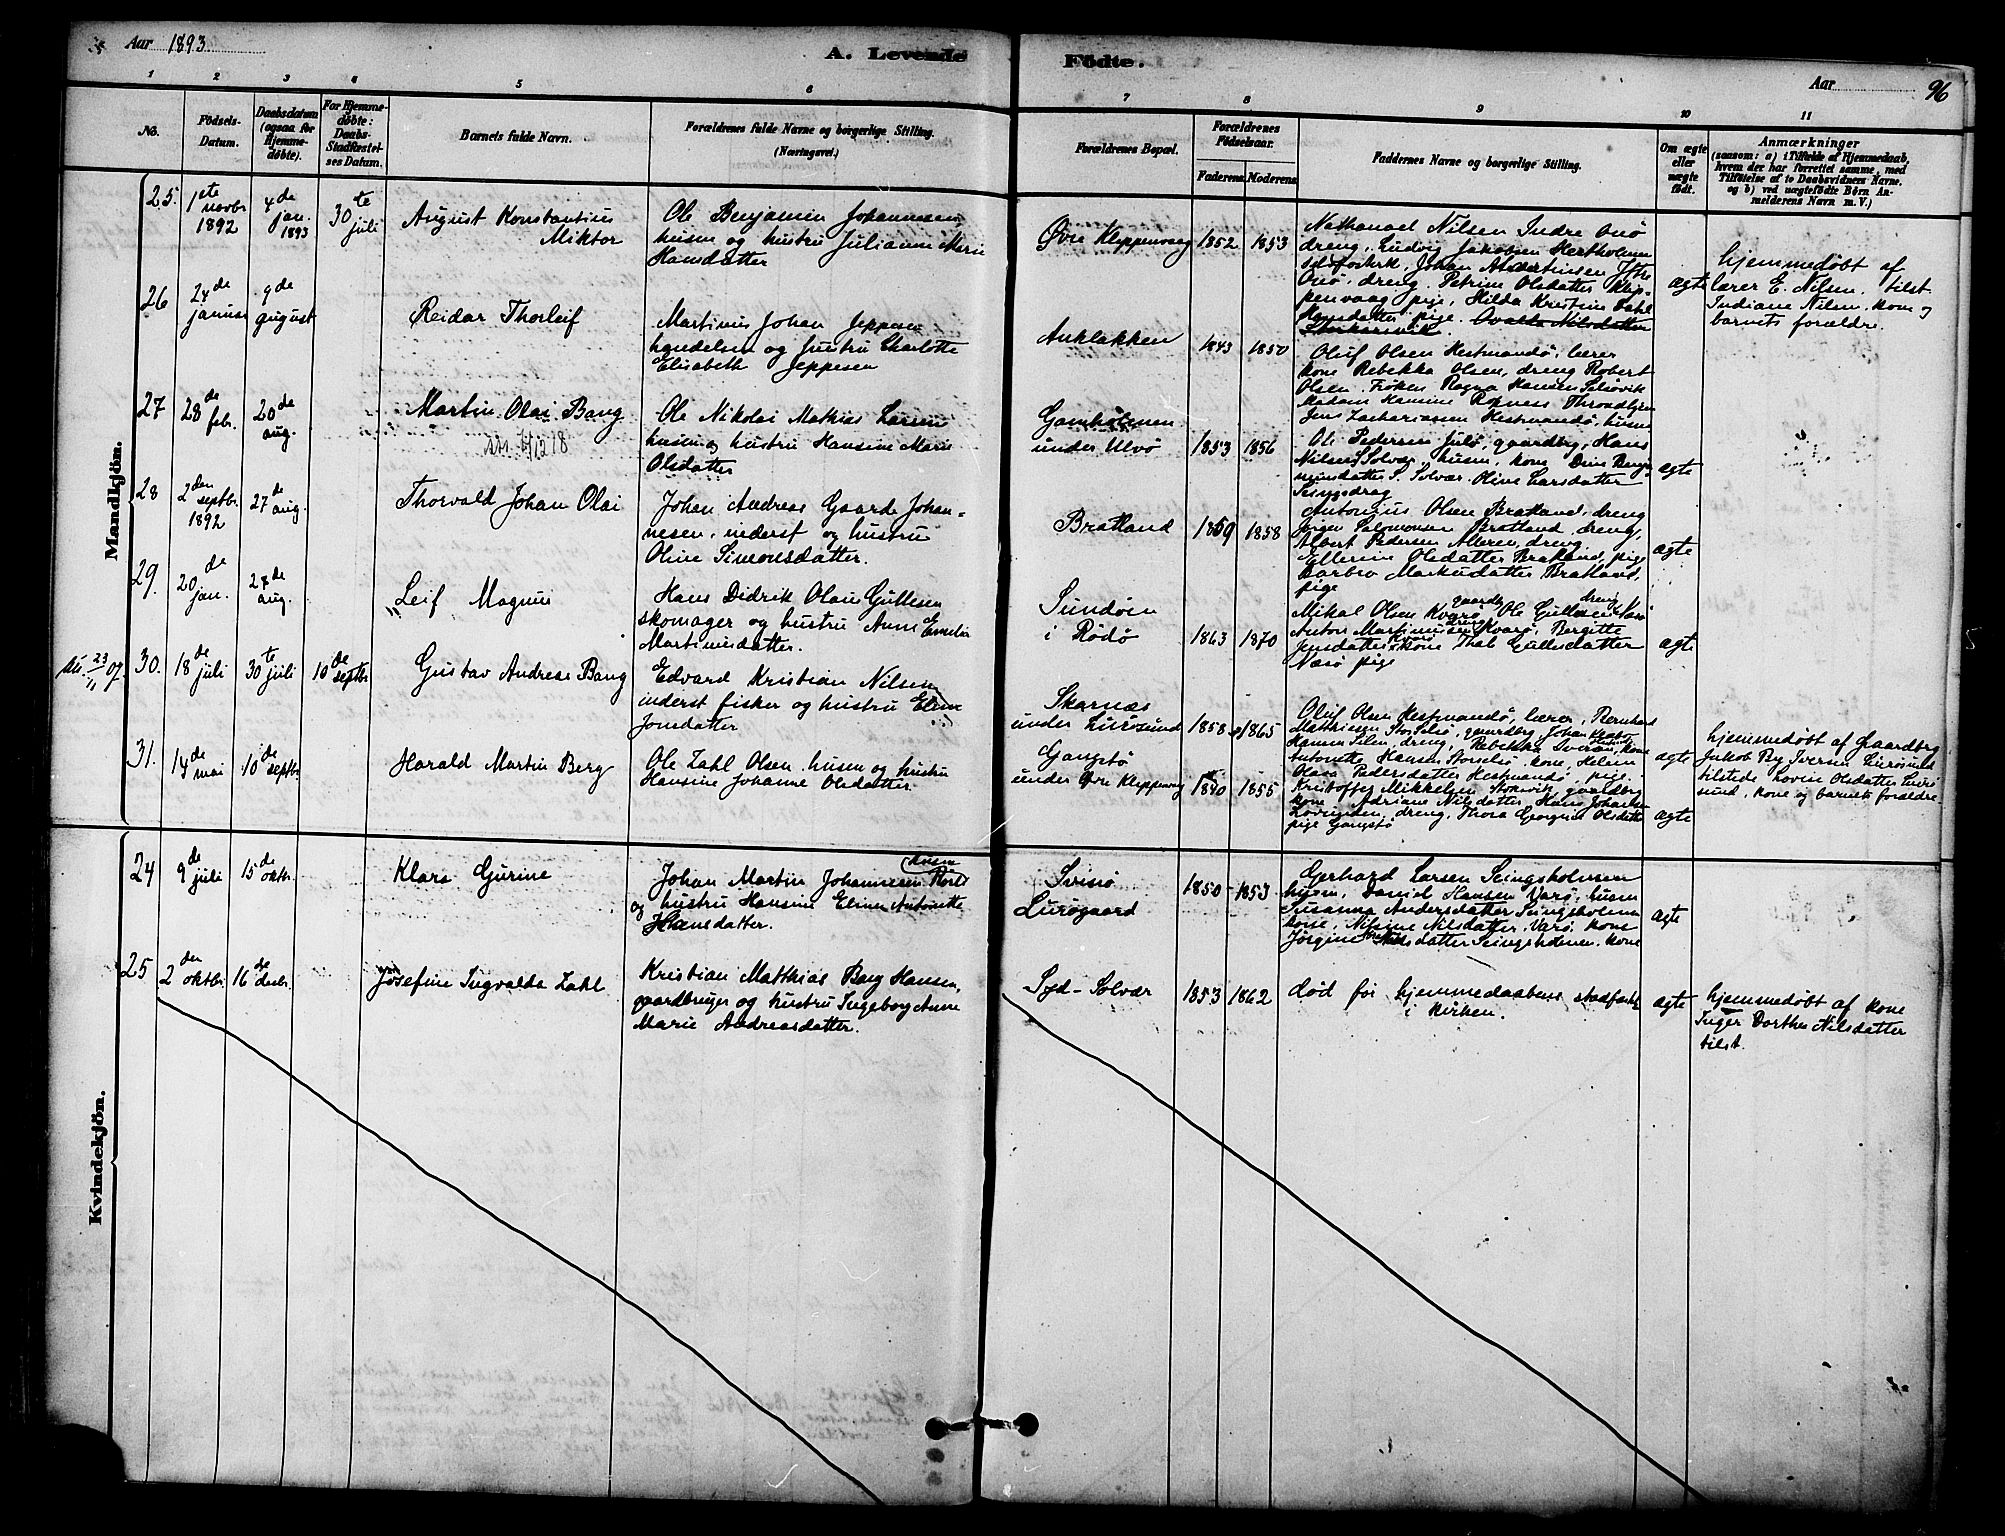 Aar 1893
A. Levende Födte.
Aar 96
1 2 3 4 5 6 7 8 9 10 11
No.
Födsels-
Datum.
Daabsdatum
(ogsaa for
Hjemme-
døbte).
For Hjemme-
døbte:
Daabs-
Stadfæstel-
ses Datum.
Barnets fulde Navn.
Forældrenes fulde Navne og borgerlige Stilling.
(Næringsvei.)
Forældrenes Bopæl.
Forældrenes
Födselsaar.
Faderens. Moderens.
Faddernes Navne og borgerlige Stilling.
Om ægte
eller
uægte
født.
Anmærkninger
(saasom: a) i Tilfælde af Hjemmedaab,
hvem der har forrettet samme, med
Tilføielse af to Daabsvidners Navne,
og b) ved uægtefödte Börn An-
melderens Navn m. V.)
Mandkjön.
25. 1ste novbr. 1892
4de jan. 1893
30te juli
August Konstantius
Miktor
Ole Benjamin Johannesen
husm og hustru Julianne Marie
Hansdatter
Øvre Kleppenvaag 1852 1853
Nathanael Nilsen Indre Onø
dreng, Ludvig Jakobsen Hestholmen
Johan
Onø, dreng. Petrine Olsdatter Klip-
penvaag pige, Hilda Kristine Dahl
Hansdatter pige.
ægte
hjemmedøbt af
lærer E. Nilsen. tilst.
Indiane Nilsen, kone og
barnets forældre.
26 24de januar
9de august
Reidar Thorleif
Martinus Johan Jeppesen
handelsm og hustru Charlotte
Elisabeth Jeppesen
Anklakken 1843 1850
Oluf Olsen Hestmandø, lærer
kone Rebekka Olsen, dreng Robert
Olsen. Frøken Ragna Hansen Selsøvik
Madam Hansine
Jens Zachariassen Hestmandø, husm
27 28de febr.
20de aug.
Martin Olai Bang
Ole Nikolai Mathias Larsen
husm og hustru Hansine Marie
Olsdatter
Gamholmen
under Ulvø 1853 1856
Ole Pedersen gaardbr, Hans
Nilsen S. Solvær, husm, kone
S. Solvær. Oline Larsdatter
ægte
28 2den septbr. 1892
27de aug.
Thorvald Johan Olai
Johan Andreas Gaarde Johan-
nesen, inderst og hustru
Oline Simonsdatter.
Bratland 1859 1858
Antonius Olsen Bratland, dreng
Jørgen Salomonsen Bratland, dreng,
Albert Pedersen dreng
Ellerine Olsdatter Bratland, pige
Barbro Markusdatter Bratland,
pige
ægte
29. 20de jan.
24de aug.
Leif Magnus
Hans Didrik Olaus Gullesen
skomager og hustru Anne Emelie
Martinusdatter.
Sundøen
i Rødø 1863 1870
Mikal Olsen Kvarø gaardbr, Ole Gullesen dreng
Anton Martinussen Kvarø dreng, Bergitte
Jensdatter Kvarø kone Gullesdatter
Næsø pige
ægte
23/11 07. 30. 18de juli
30te juli
10de septbr.
Gustav Andreas Bang
Edvard Kristian Nilsen
inderst fisker og hustru Eline
Jonsdatter
Skarnæs
under Lurøsund 1858 1865
Oluf Olsen Hestmandø, lærer, Bernhard
Mathiesen Storselsø, gaardbg, Johan
Hansen dreng, Rebekka Iversen, kone
Antonette Hansen Storselsø, kone, Helene
Olava Pedersdatter Hestmandø, pige.
ægte
hjemmedøbt af gaardbrg
Jakob By Iversen Lurøsund
tilstede Lovise Olsdatter Lurø-
sund, kone og barnets forældre.
31. 14de mai
10de septbr.
Harald Martin Berg
Ole Zahl Olsen, husm og hustru
Hansine Johanne Olsdatter.
Gangstø
under Øvre Kleppenvag 1840 1855
Kristoffer Mikkelsen Stokvik, gaardbg
kone Adriane Nilsdatter, Hans Johansen
Lovunden, dreng, Thora Georgine Olsdatter
pige Gangstø
ægte
Kvindekjön.
24 9de juli
15de oktbr.
Klara Gurine
Johan Martin Johannesen husm
og hustru Hansine Eline Antonette
Hansdatter.
Svinø
Lurøgaard 1850 1853
Gerhard Larsen Seingsholmen
husm, Daniel Hansen Varø, husm
Susanna Andersdatter Seingsholmen
kone, Nilsine Nilsdatter, Varø, kone
Jørgine Nilsdatter Seingsholmen, kone
ægte
25 2den oktbr.
16de decbr.
Josefine Ingvalda Zahl
Kristian Matthias Bang Hansen,
gaardbruger og hustru Ingeborg Anne
Marie Andreasdatter.
Syd-Solvær 1853 1862
død før hjemmedaabens stadfæst.
i kirken.
ægte
hjemmedøbt af kone
Inger Dorthea Nilsdatter
tilst.